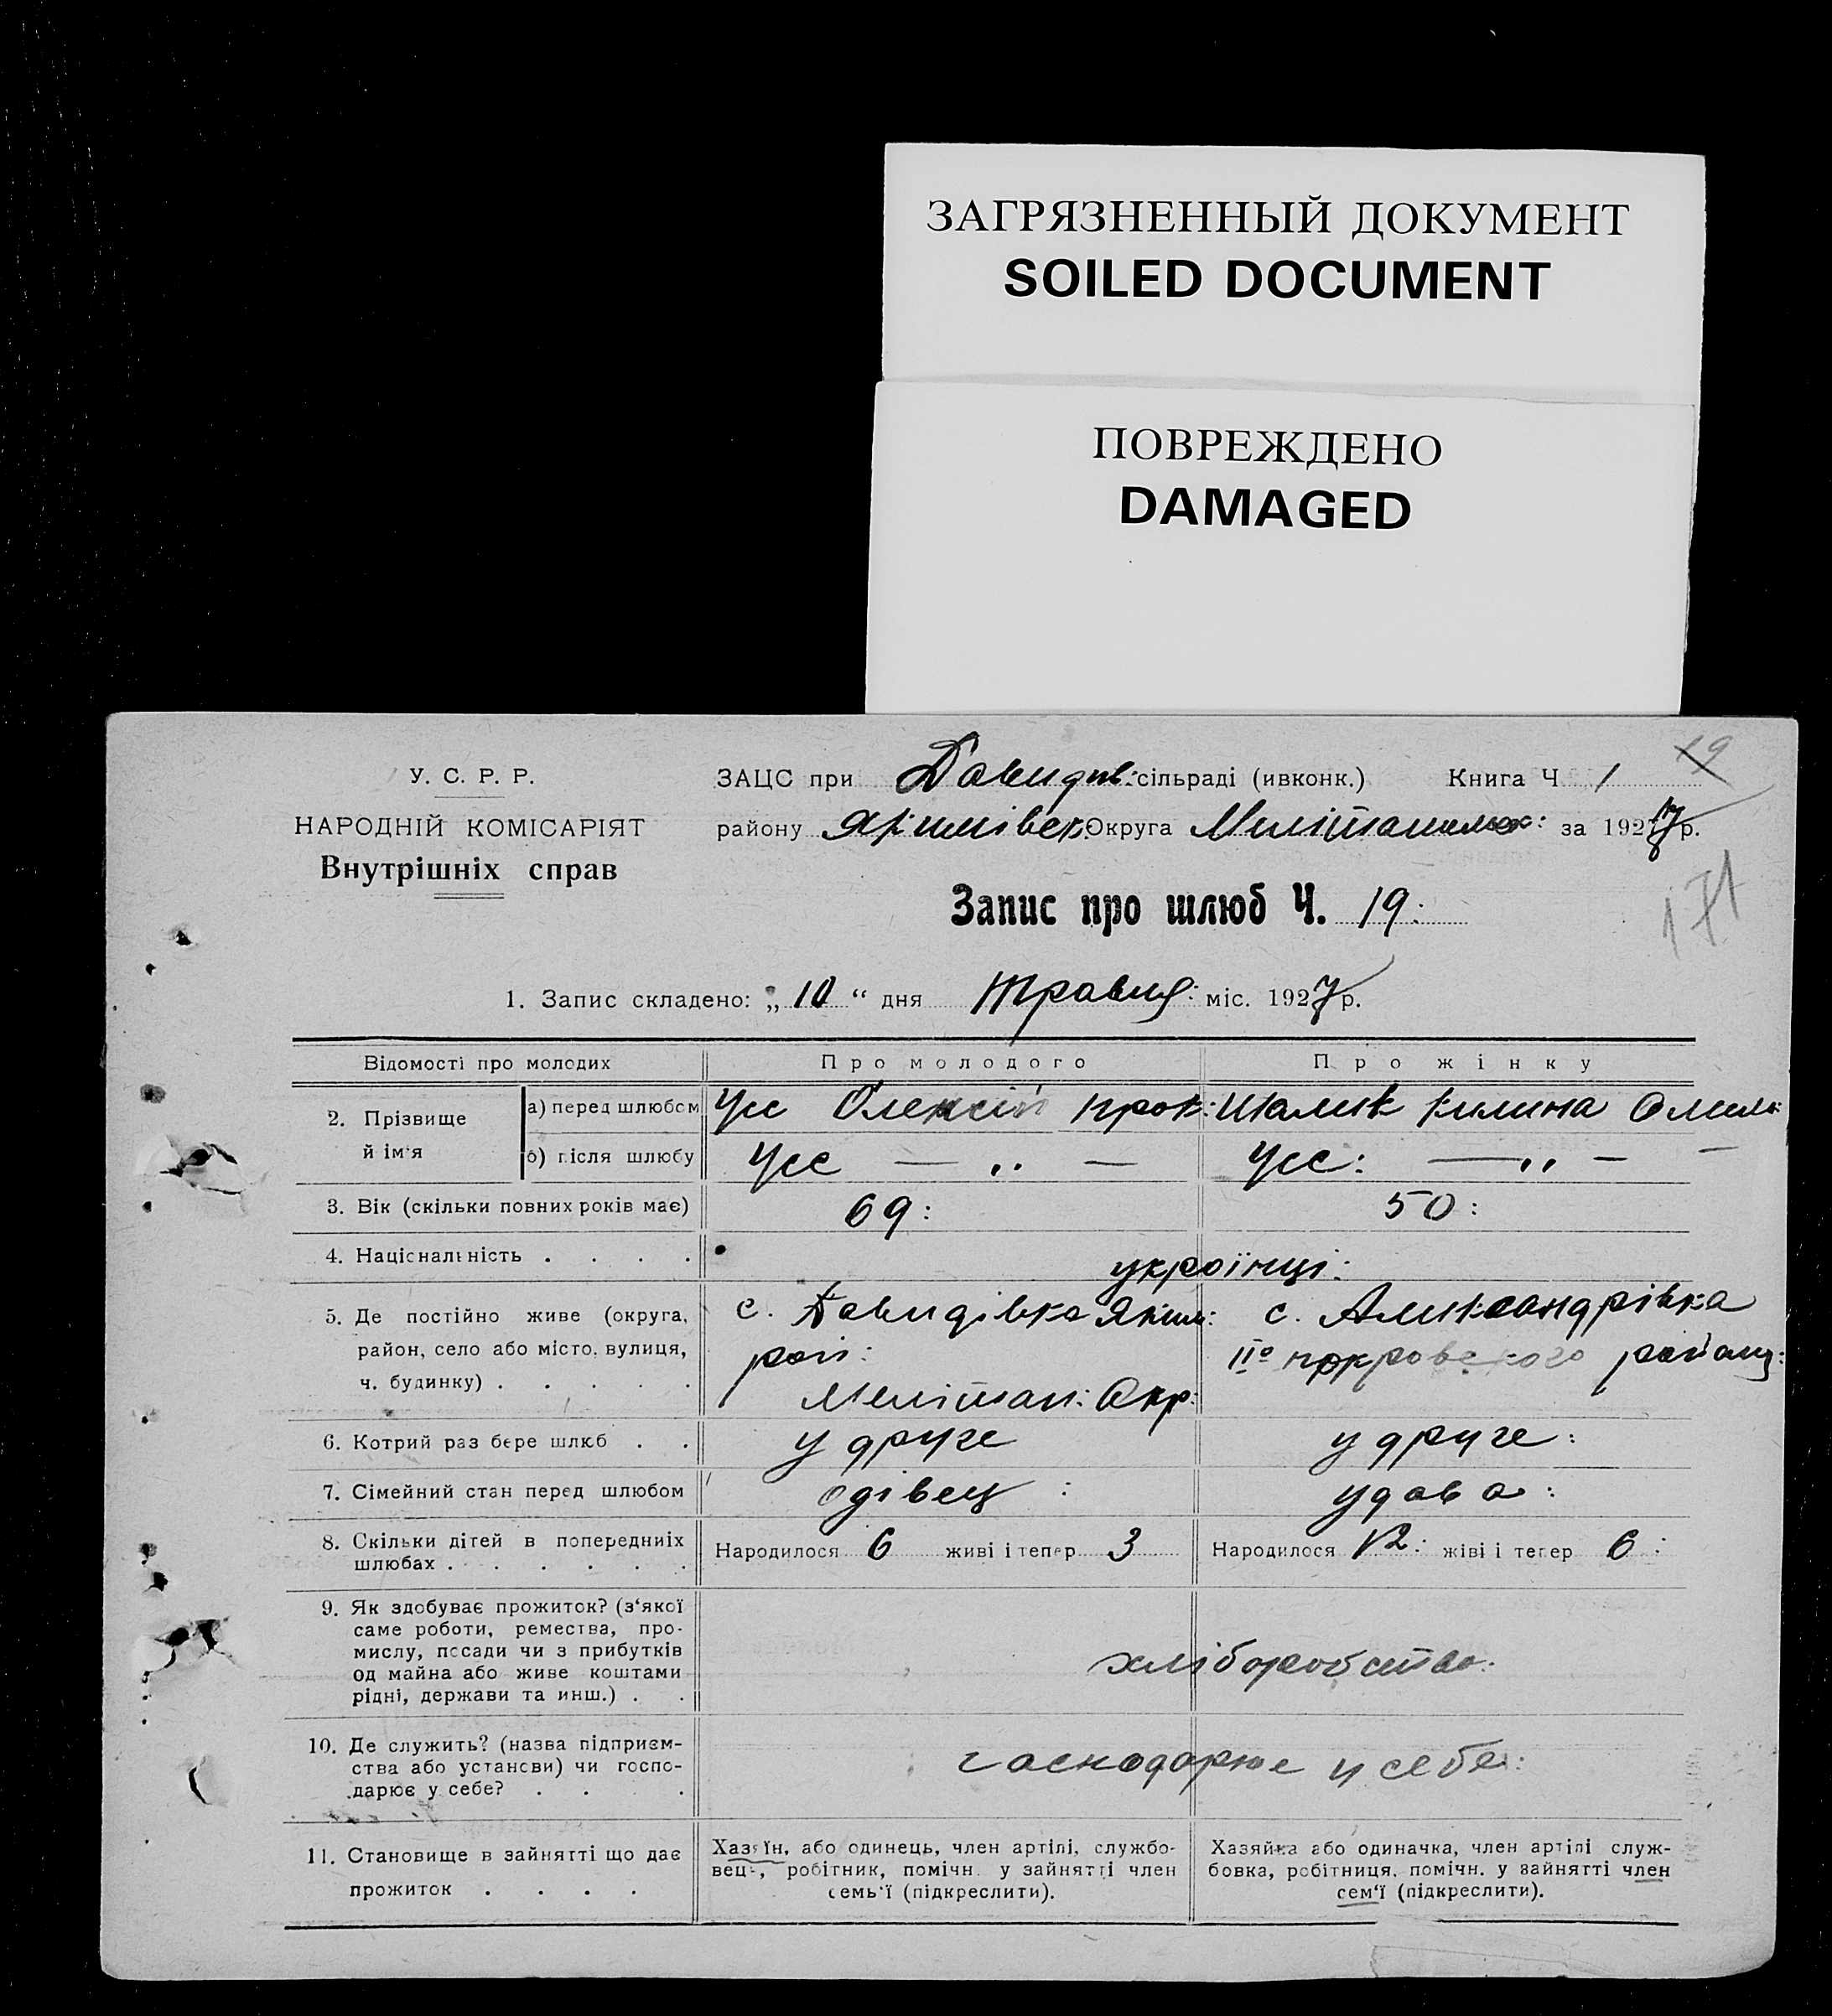 ЗАГРЯЗНЕННЫЙ ДОКУМЕНТ
SOILED DOCUMENT
ПОВРЕЖДЕНО
DAMAGED
19
У. С. Р. Р.
НАРОДНІЙ КОМІСАРІЯТ
Внутрішніх справ
ЗАЦС при Давидів: сільраді (ивконк.) Книга Ч 1
району Якимівск: Округа за 1927 р.
171
Запис про шлюб Ч. 19:
1. Запис складено: „ 10 “ дня Травня: міс. 1927 р.
Відомості про молодих Про молодого Про жінку
2. Прізвище й ім'я
а) перед шлюбом Усс Олексій Прок: Шалик Килина Омель:
б) після шлюбу Усс — „ — Усс: — „ — —
3. Вік (скільки повних років має) 69: 50:
4. Національність . . . . українці:
5. Де постійно живе (округа, район, село або місто, вулиця, ч. будинку) . . . . .
с. Давидівка Яким:
рай:
Меліттоп: Окр:
с. Александрівка
ІІо покровського району:
6. Котрий раз бере шлюб . . у друге у друге:
7. Сімейний стан перед шлюбом одівец : удова:
8. Скільки дітей в попередниіх шлюбах . . . . . .
Народилося 6 живі і тепер 3 Народилося 12: жіві і тепер 6:
9. Як здобуває прожиток? (з'якої
саме роботи, ремества, про-
мислу, посади чи з прибутків
од майна або живе коштами
рідні, держави та инш.) . .
хліборобство:
10. Де служить? (назва підприєм-
ства або установи) чи госпо-
дарює у себе? . . .
господарює у себе:
11. Становище в зайнятті що дає
прожиток . . . .
Хазяїн, або одинець, член артілі, службо-
вець, робітник, помічн. у зайнятті член
семь'ї (підкреслити).
Хазяйка або одиначка, член артілі служ-
бовка, робітниця, помічн. у зайнятті член
сем'ї (підкреслити).